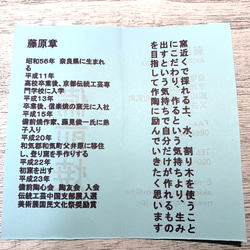 藤原章
昭和56年 奈良県に生まれる
平成11年
高校卒業後、京都伝統工芸専門学校に入学
平成13年
卒業後、信楽焼の窯元に入社
平成15年
備前焼作家、藤見俊一氏に弟子入り
平成20年
和気郡和気町父井原に移住し、登り窯を手作りする
平成22年
初窯を出す
平成23年
備前陶心会 陶友会 入会
伝統工芸中国支部展入選
美術展国民文化祭奨励賞
窯近くで採れる土、水、割り木を使うこと
にこだわり、作るという気持ちより、生み
出すという気持ちで自分だけが作れるもの
を目指して作陶に励んでいきたいと思います